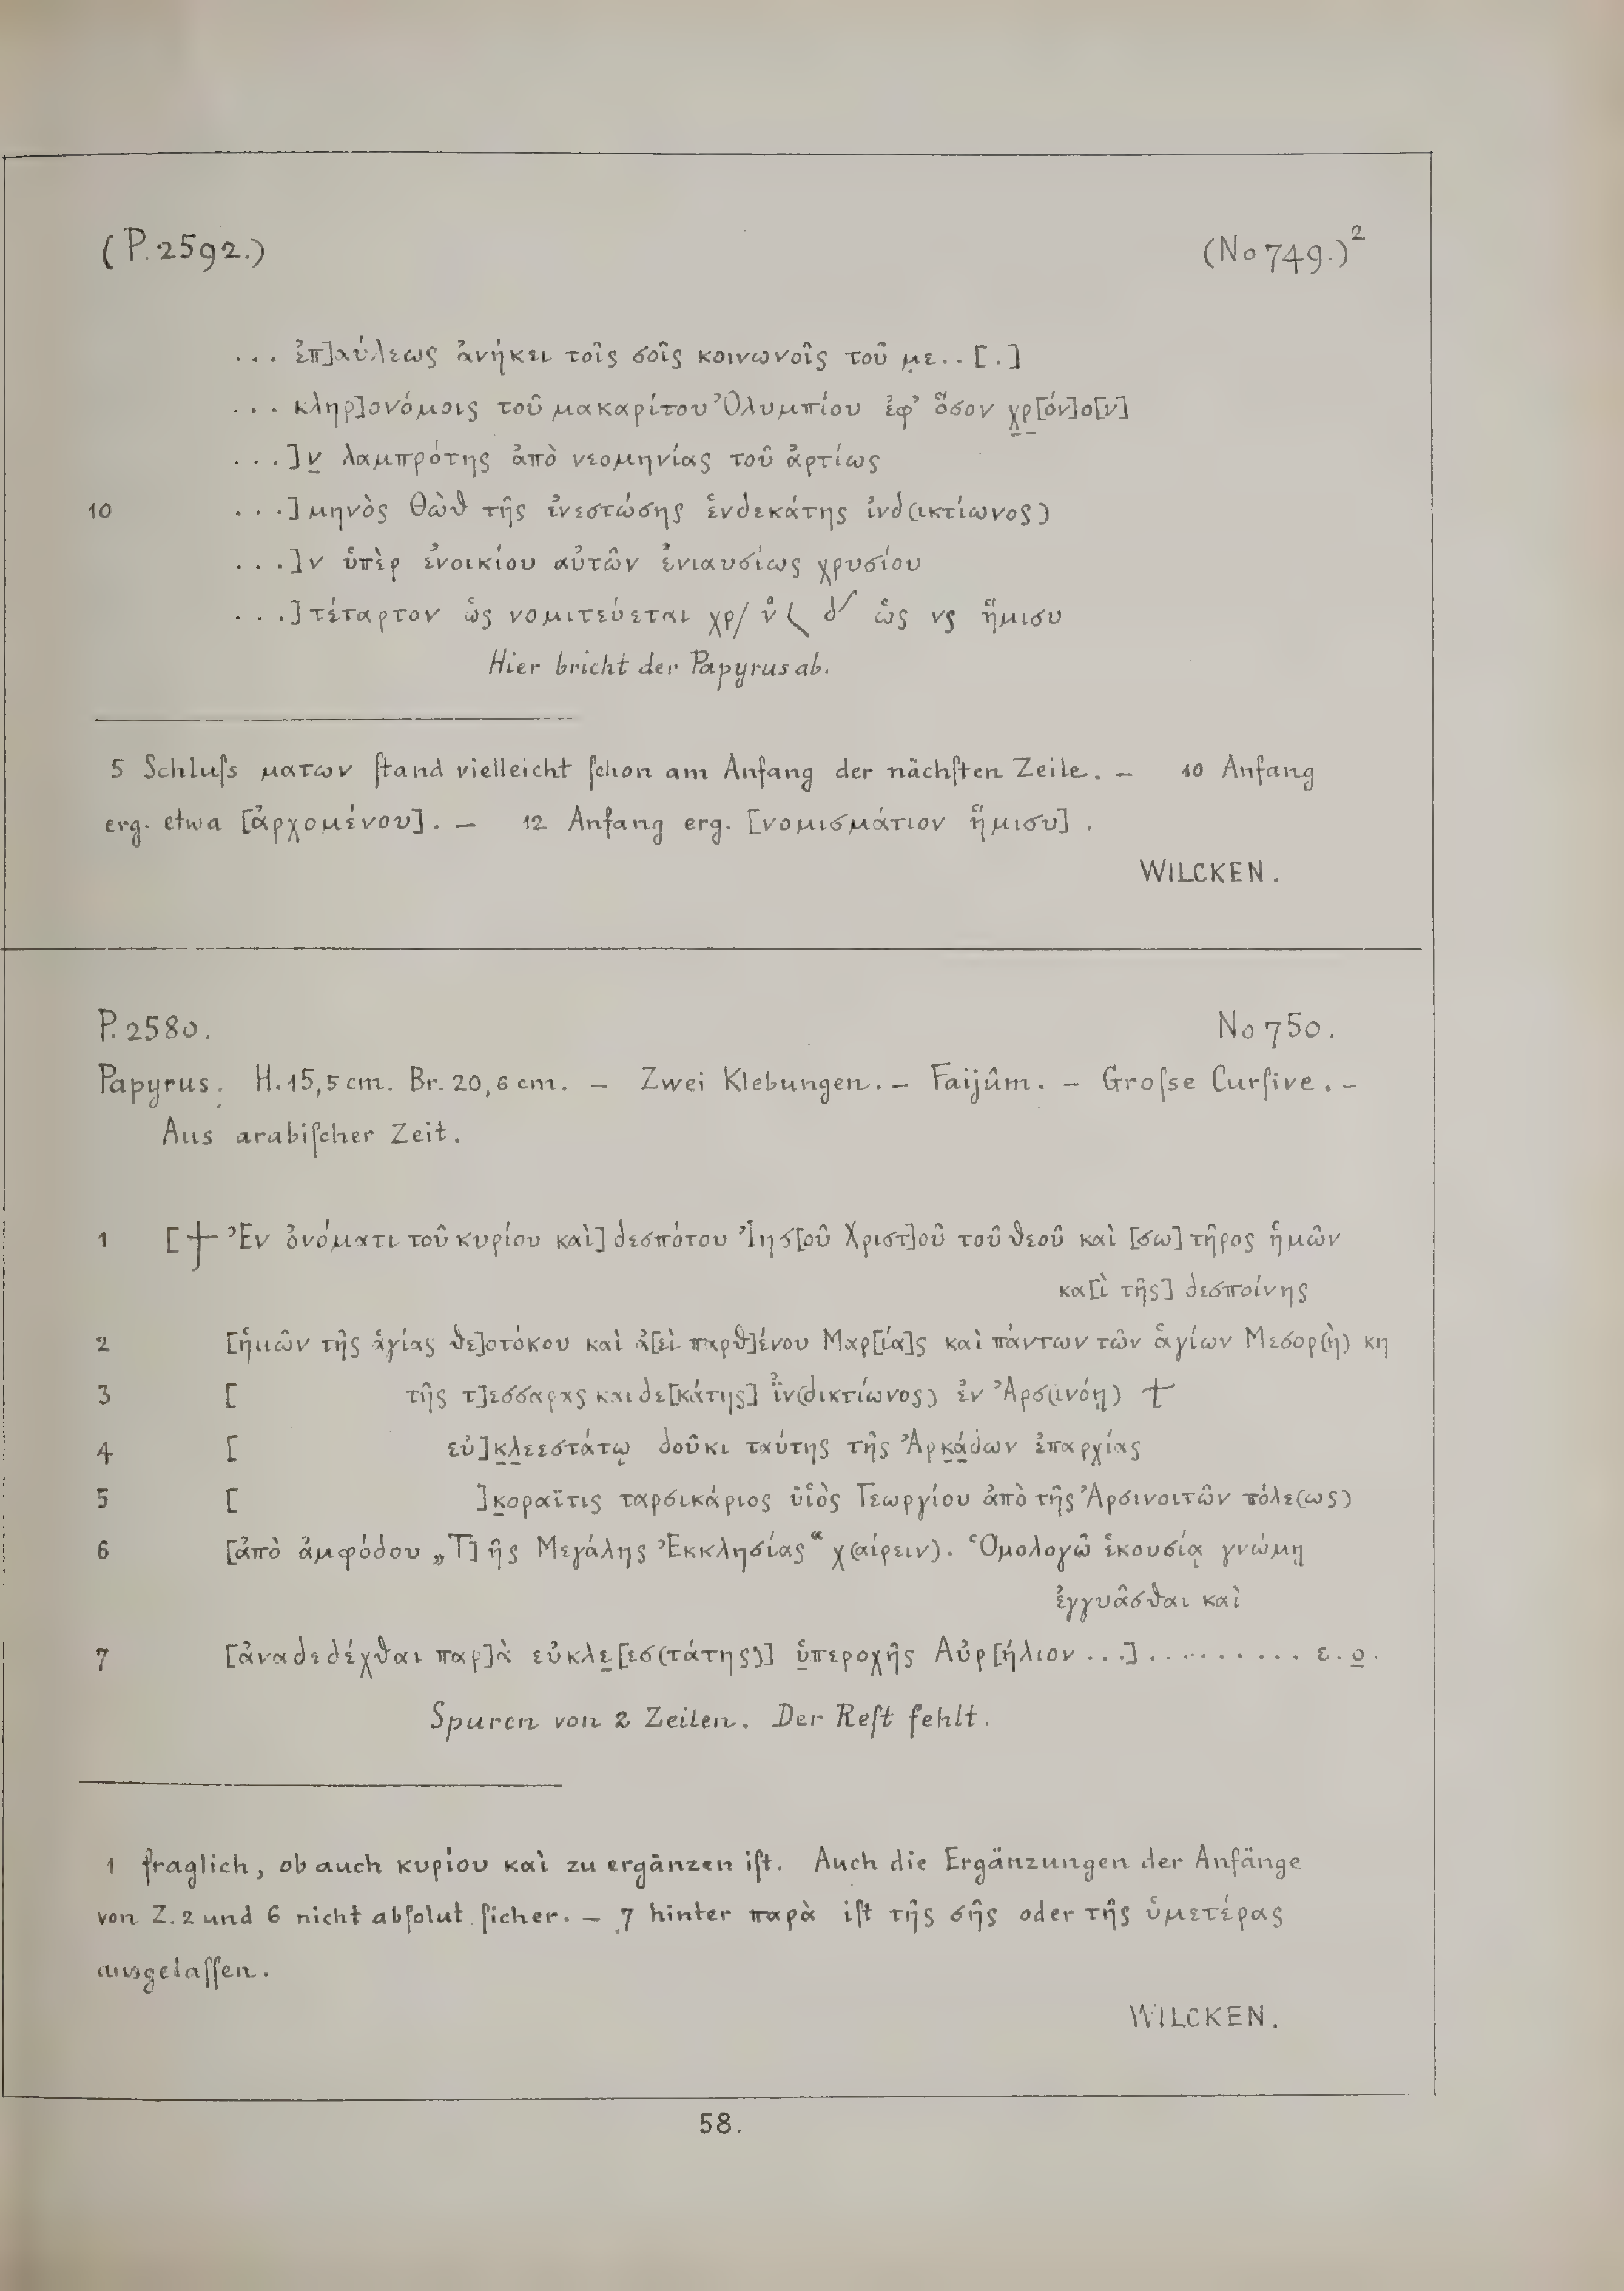 (P. 2592.) (No 749.)²
... ἐπ]αύλεως ἀνήκει τοῖς σοῖς κοινωνοῖς τοῦ μ̣ε..[.]
... κληρ]ονόμοις τοῦ μακαρίτου Ὀλυμπίου ἐφ' ὅσον χ̲ρ̲[όν]ο[ν]
...]ν̲ λαμπρότης ἀπὸ νεομηνίας τοῦ ἀρτίως
10 ...] μηνὸς Θὼθ τῆς ἐνεστώσης ἑνδεκάτης ἰνδ(ικτίωνος)
...]ν ὑπὲρ ἐνοικίου αὐτῶν ἐνιαυσίως χρυσίου
...] τέταρτον ὡς νομιτεύεται χρ/ ν̊ ⟨ δ́ ὡς νς ἥμισυ
Hier bricht der Papyrus ab.
5 Schluſs ματων ſtand vielleicht ſchon am Anfang der nächſten Zeile. – 10 Anfang
erg. etwa [ἀρχομένου]. – 12 Anfang erg. [νομισμάτιον ἥμισυ].
WILCKEN.
P. 2580. No 750.
Papyrus. H. 15,5 cm. Br. 20,6 cm. – Zwei Klebungen. – Faijûm. – Groſse Curſive. –
Aus arabiſcher Zeit.
1 [† Ἐν ὀνόματι τοῦ κυρίου καὶ] δεσπότου Ἰησ[οῦ Χριστ]οῦ τοῦ θεοῦ καὶ [σω]τῆρος ἡμῶν
κα[ὶ τῆς] δεσποίνης
2 [ἡμῶν τῆς ἁγίας θε]οτόκου καὶ ἀ[εὶ παρθ]ένου Μαρ[ία]ς καὶ πάντων τῶν ἁγίων Μεσορ(ὴ) κη
3 [ τῆς τ]εσσαρας και δε[κάτης] ἰ̈ν(δικτίωνος) ἐν Ἀρσ(ινόῃ) †
4 [ εὐ]κ̲λ̲εεστάτῳ δοῦκι ταύτης τῆς Ἀρκ̲ά̲δων ἐπαρχίας
5 [ ]κ̲οραϊτις ταρσικάριος ὑϊὸς Γεωργίου ἀπὸ τῆς Ἀρσινοιτῶν πόλε(ως)
6 [ἀπὸ ἀμφόδου „Τ]ῆς Μεγάλης Ἐκκλησίας“ χ(αίρειν). Ὁμολογῶ ἑκουσίᾳ γνώμῃ
ἐγγυᾶσθαι καὶ
7 [ἀναδεδέχθαι παρ]ὰ εὐκλε̲[εσ(τάτης)] ὑ̲περοχῆς Αὐρ[ήλιον ...].......... ε.ο̲.
Spuren von 2 Zeilen. Der Reſt fehlt.
1 fraglich, ob auch κυρίου καὶ zu ergänzen iſt. Auch die Ergänzungen der Anfänge
von Z. 2 und 6 nicht abſolut ſicher. – 7 hinter παρὰ iſt τῆς σῆς oder τῆς ὑμετέρας
ausgelaſſen.
WILCKEN.
58.